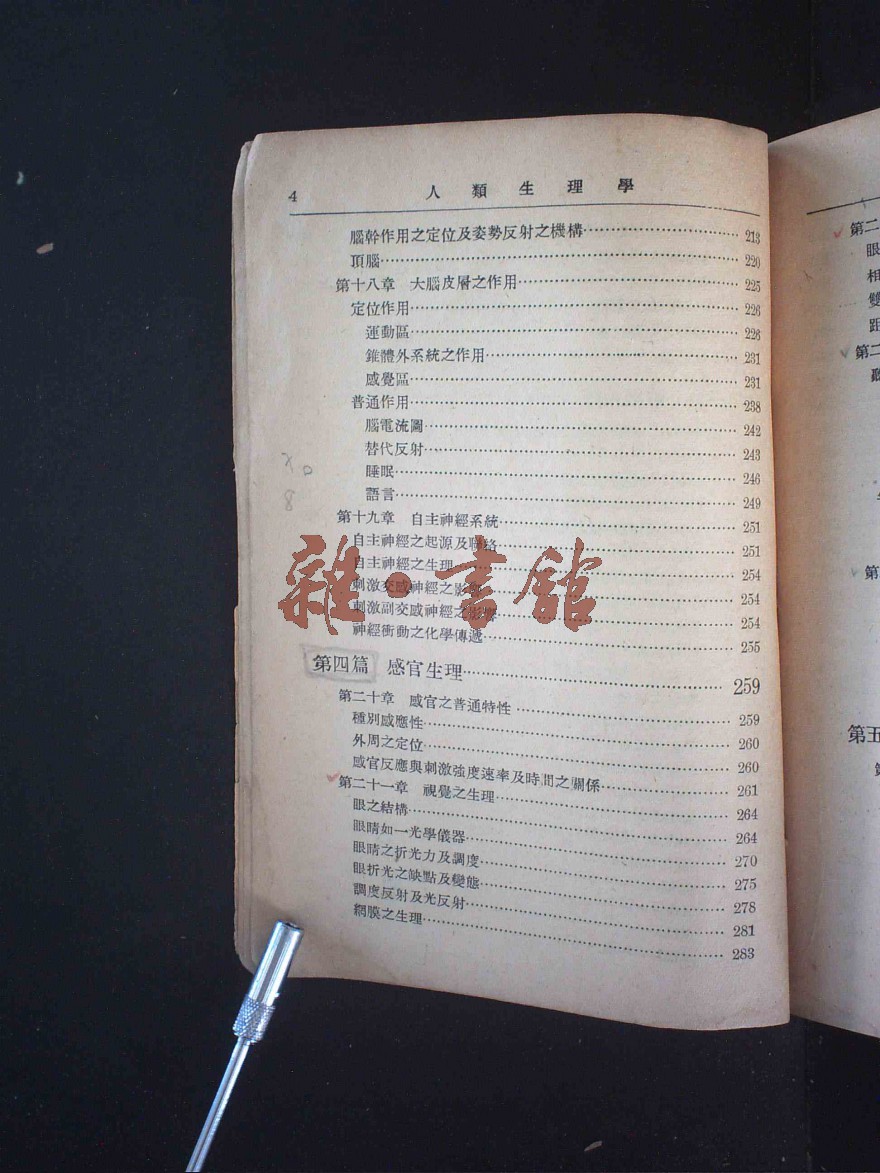 4 人類生理學
腦幹作用之定位及姿勢反射之機構 213
頂腦 220
第十八章 大腦皮層之作用 225
定位作用 226
運動區 226
錐體外系統之作用 231
感覺區 231
普通作用 238
腦電流圖 242
替代反射 243
睡眠 246
語言 249
第十九章 自主神經系統 251
自主神經之起源及聯絡 251
自主神經之生理 254
刺激交感神經之影響 254
刺激副交感神經之影響 254
神經衝動之化學傳遞 255
第四篇 感官生理 259
第二十章 感官之普通特性 259
種別感應性 260
外周之定位 260
感官反應與刺激強度速率及時間之關係 261
第二十一章 視覺之生理 264
眼之結構 264
眼睛如一光學儀器 270
眼睛之折光力及調度 275
眼折光之缺點及變態 278
調度反射及光反射 281
網膜之生理 283
雜·書館
第二
眼
相
雙
距
第二
聽
第
第五